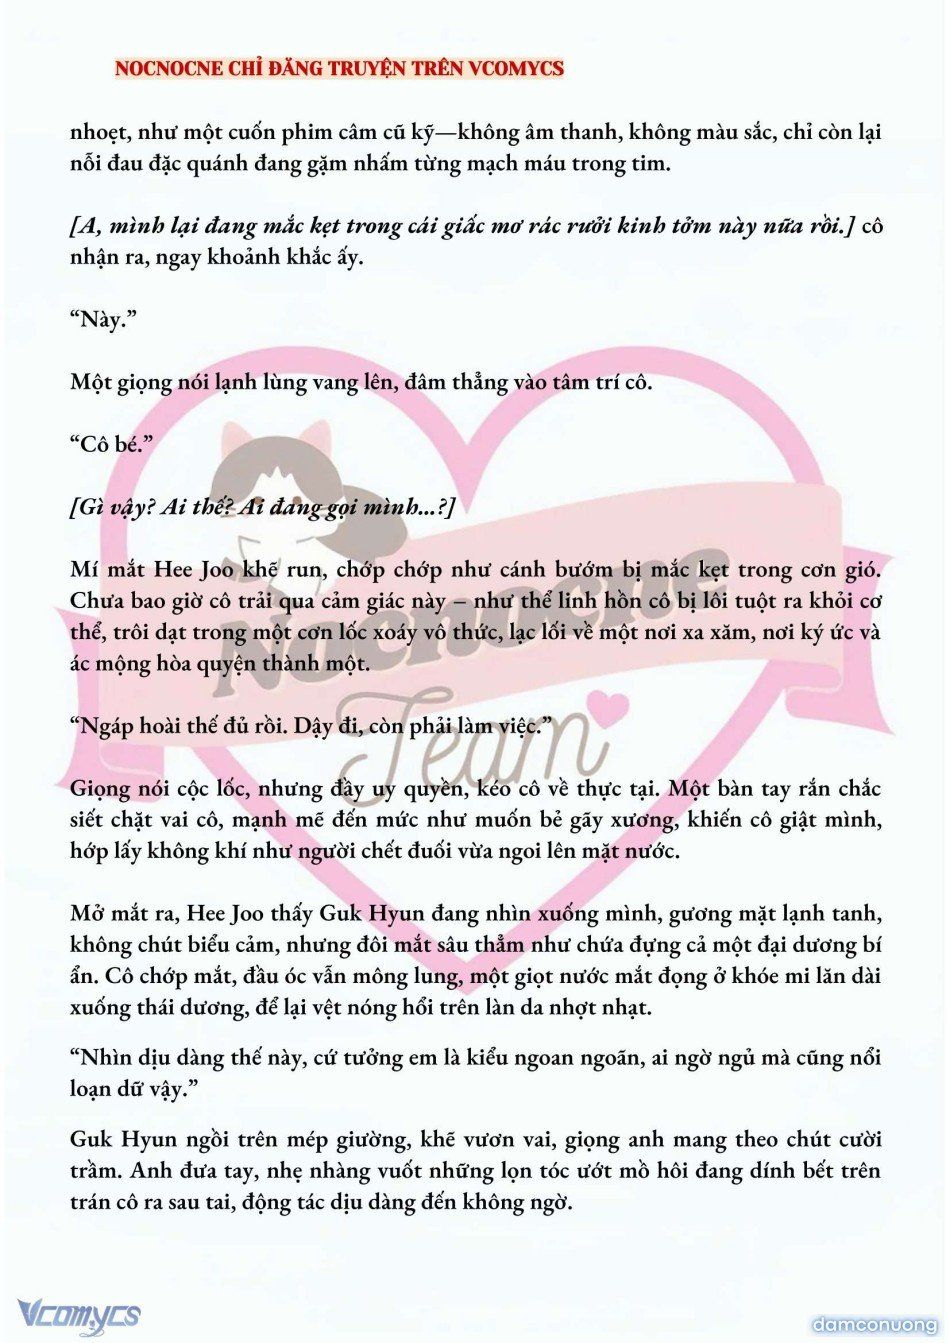 NOCNOCNE CHỈ ĐĂNG TRUYỆN TRÊN VCOMYCS
nhoẹt, như một cuốn phim câm cũ kỹ—không âm thanh, không màu sắc, chỉ còn lại
nỗi đau đặc quánh đang gặm nhấm từng mạch máu trong tim.
[A, mình lại đang mắc kẹt trong cái giấc mơ rác rưởi kinh tởm này nữa rồi.] cô
nhận ra, ngay khoảnh khắc ấy.
“Này.”
Một giọng nói lạnh lùng vang lên, đâm thẳng vào tâm trí cô.
“Cô bé.”
[Gì vậy? Ai thế? Ai đang gọi mình...?]
Mí mắt Hee Joo khẽ run, chớp chớp như cánh bướm bị mắc kẹt trong cơn gió.
Chưa bao giờ cô trải qua cảm giác này – như thể linh hồn cô bị lôi tuột ra khỏi cơ
thể, trôi dạt trong một cơn lốc xoáy vô thức, lạc lối về một nơi xa xăm, nơi ký ức và
ác mộng hòa quyện thành một.
Nocnocne
“Ngáp hoài thế đủ rồi. Dậy đi, còn phải làm việc.”
Team
Giọng nói cộc lốc, nhưng đầy uy quyền, kéo cô về thực tại. Một bàn tay rắn chắc
siết chặt vai cô, mạnh mẽ đến mức như muốn bẻ gãy xương, khiến cô giật mình,
hớp lấy không khí như người chết đuối vừa ngoi lên mặt nước.
Mở mắt ra, Hee Joo thấy Guk Hyun đang nhìn xuống mình, gương mặt lạnh tanh,
không chút biểu cảm, nhưng đôi mắt sâu thẳm như chứa đựng cả một đại dương bí
ẩn. Cô chớp mắt, đầu óc vẫn mông lung, một giọt nước mắt đọng ở khóe mi lăn dài
xuống thái dương, để lại vệt nóng hổi trên làn da nhợt nhạt.
“Nhìn dịu dàng thế này, cứ tưởng em là kiểu ngoan ngoãn, ai ngờ ngủ mà cũng nổi
loạn dữ vậy.”
Guk Hyun ngồi trên mép giường, khẽ vươn vai, giọng anh mang theo chút cười
trầm. Anh đưa tay, nhẹ nhàng vuốt những lọn tóc ướt mồ hôi đang dính bết trên
trán cô ra sau tai, động tác dịu dàng đến không ngờ.
Vcomycs
damconuong